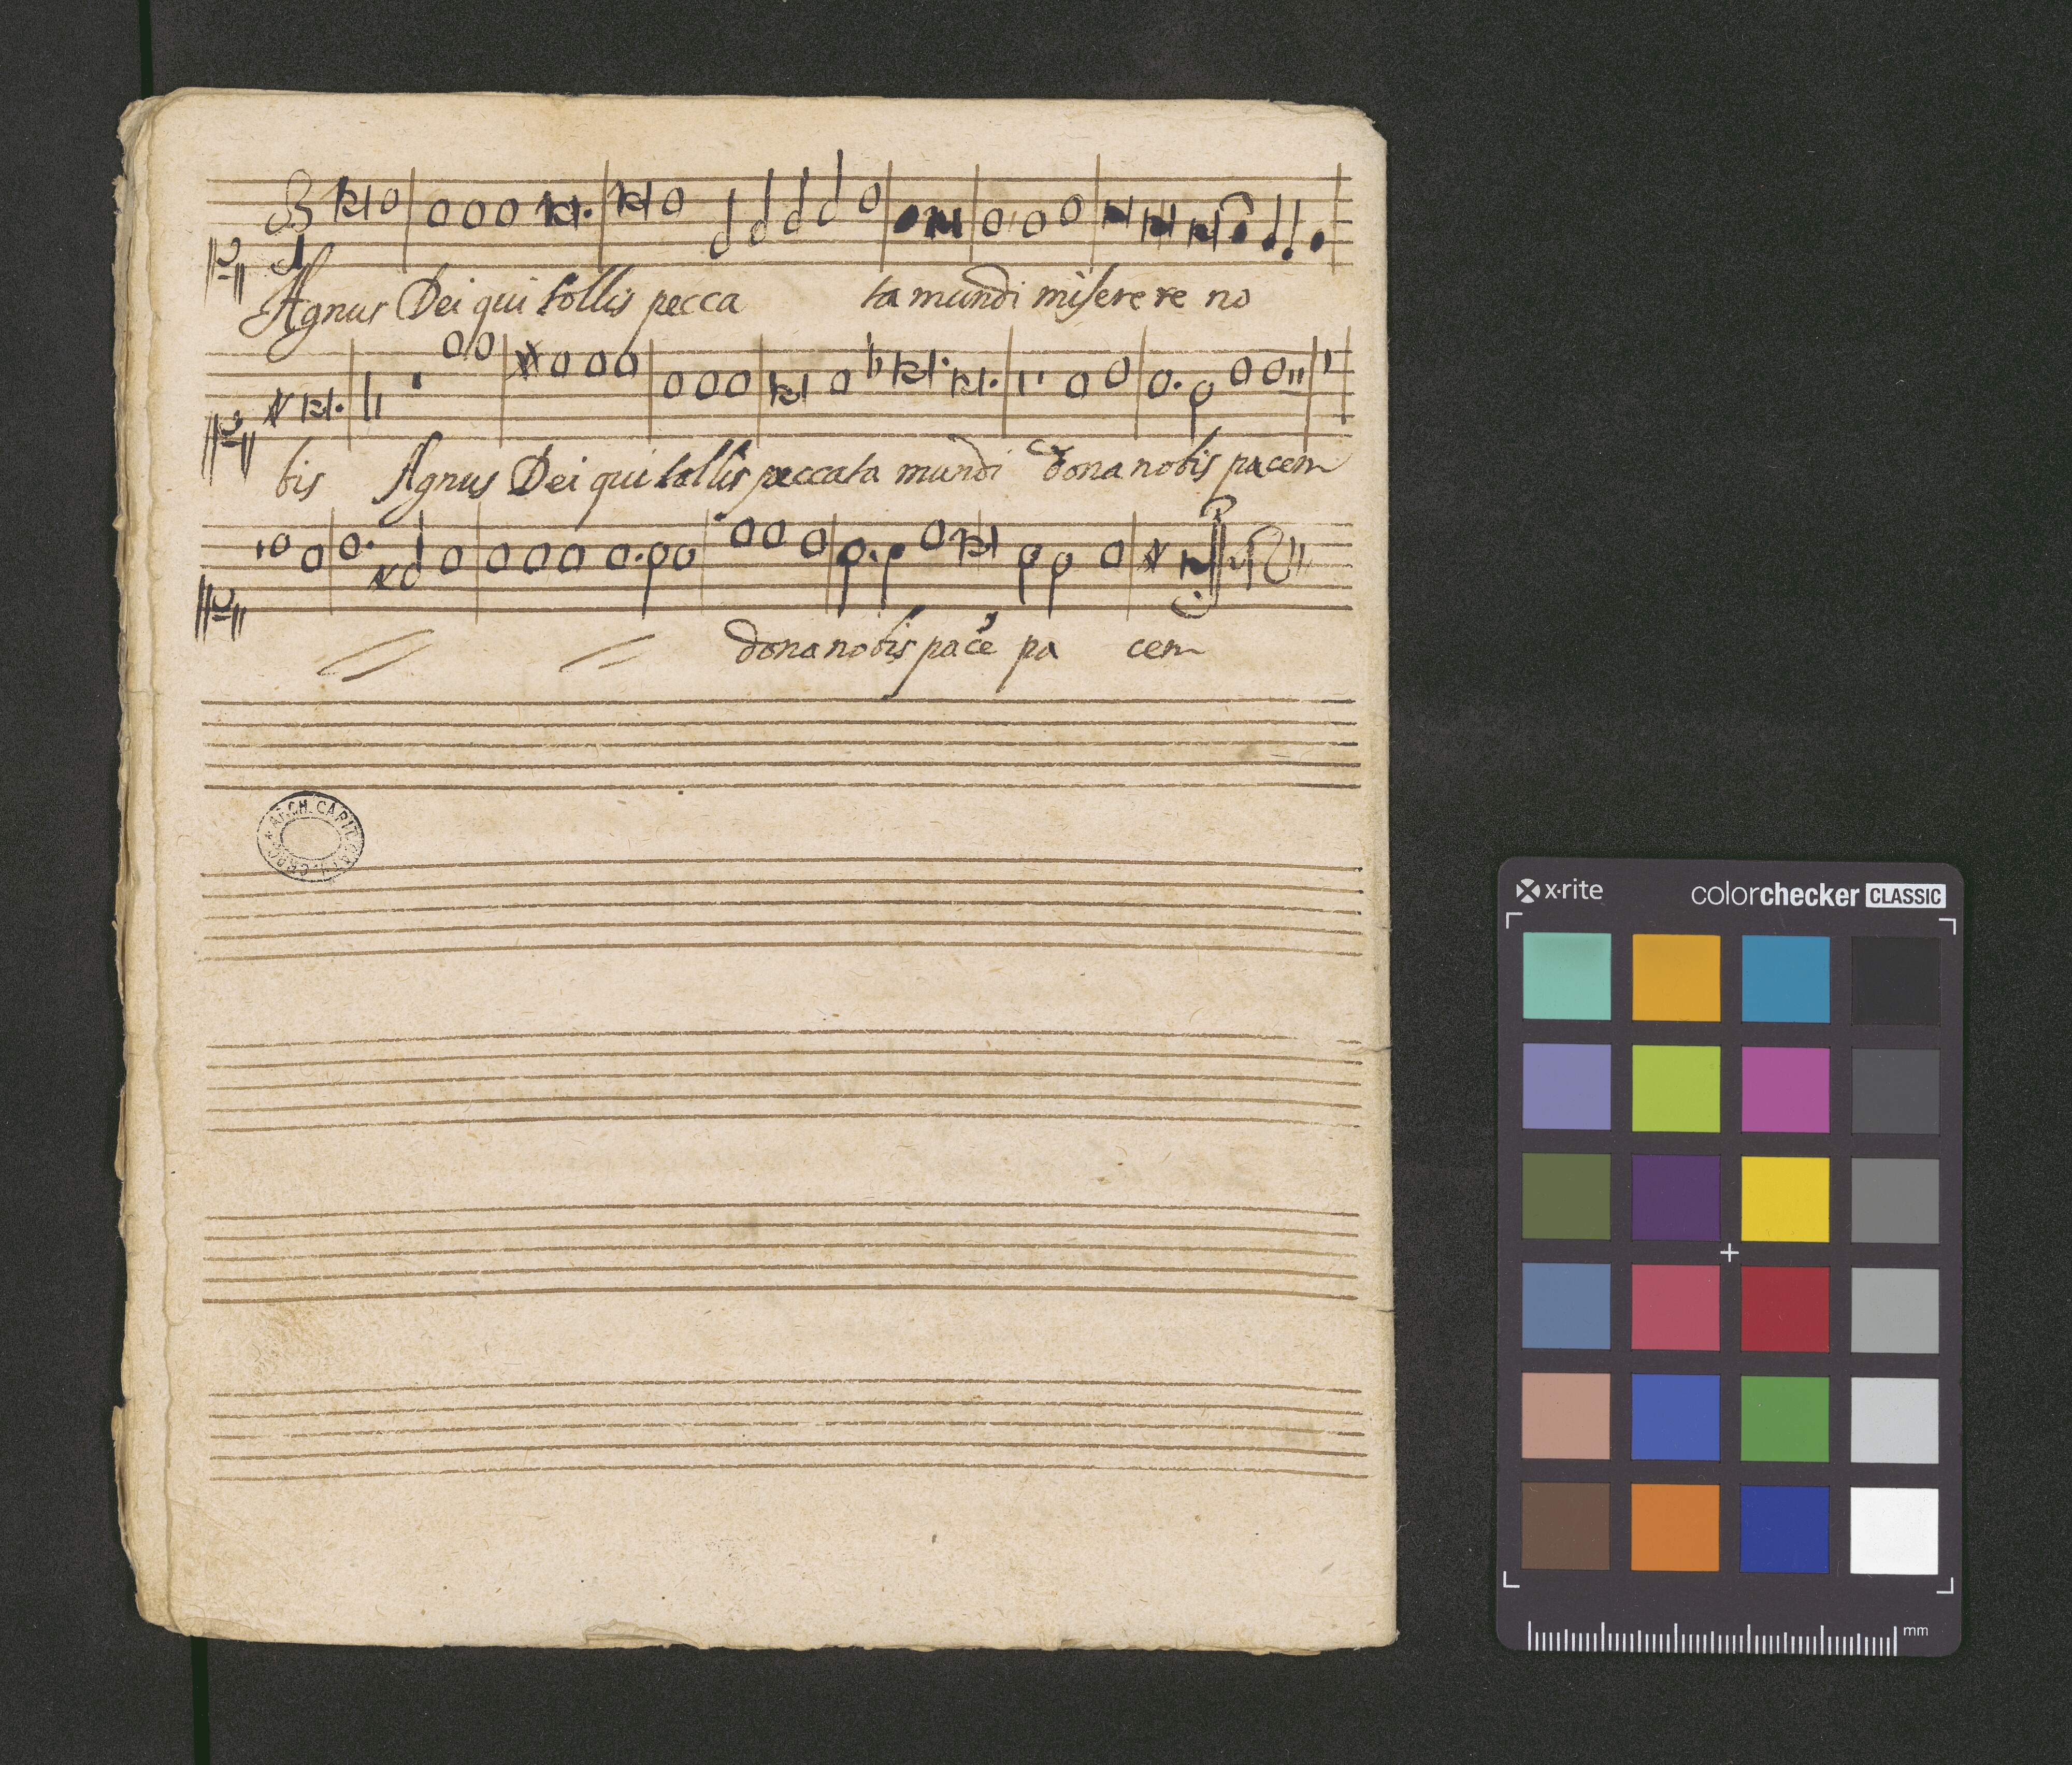 Agnus Dei qui tollis pecca ta mundi miserere no
bis Agnus Dei qui tollis peccata mundi dona nobis pacem
dona nobis pacē pa cem
ARCH. CAPIT.
x·rite colorchecker CLASSIC
mm